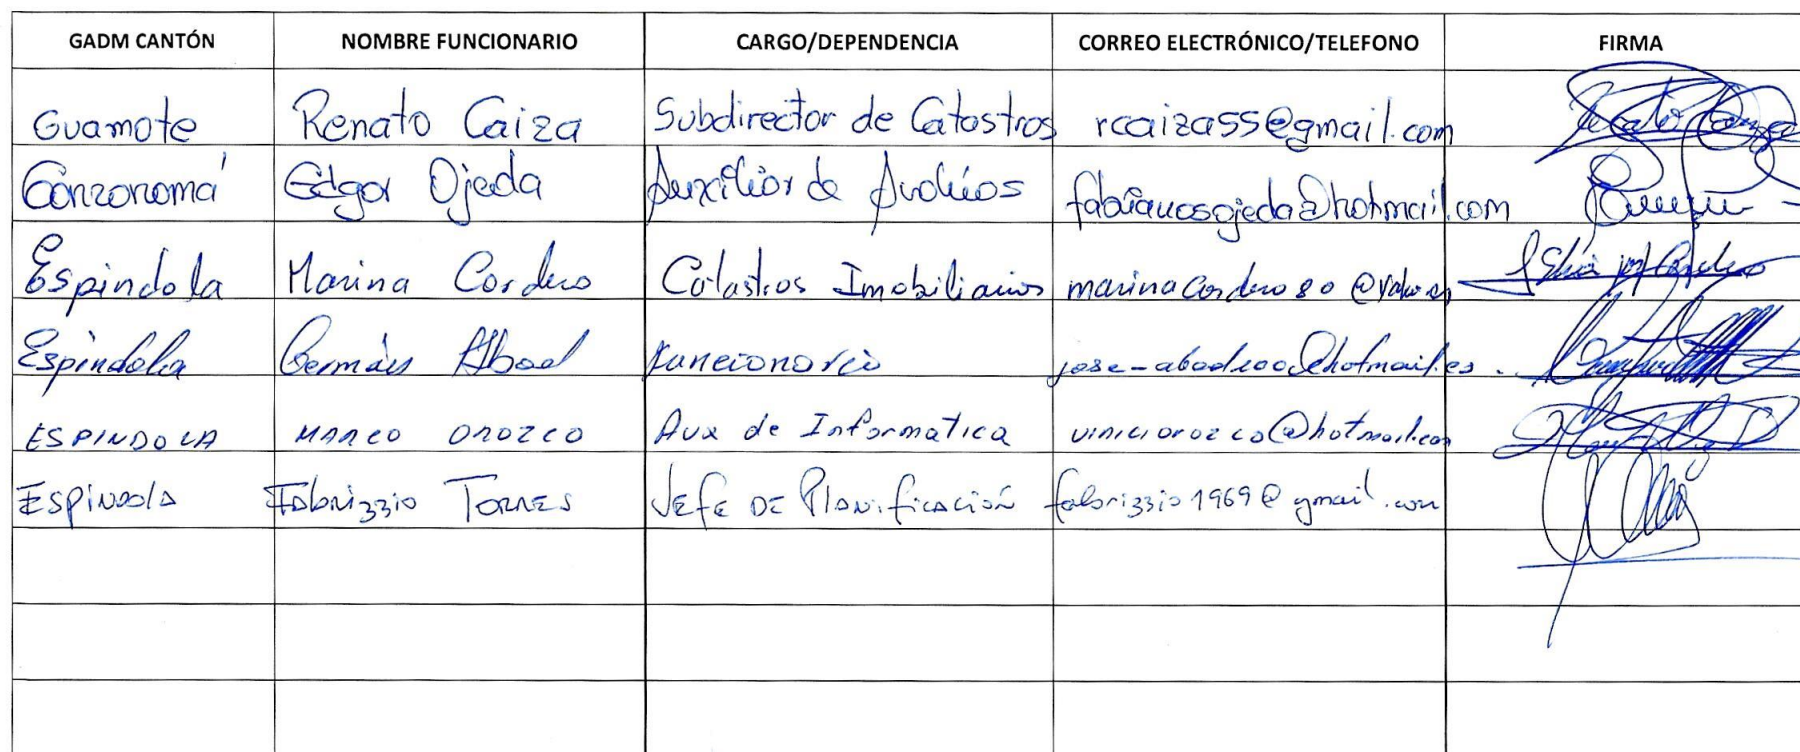 GADM CANTÓN NOMBRE FUNCIONARIO CARGO/DEPENDENCIA CORREO ELECTRÓNICO/TELEFONO FIRMA
Guamote Renato Caiza Subdirector de Catastros rcaiza55@gmail.com
Gonzonomá Edgar Ojeda Auxiliar de Avalúos
Espindola Marina Cordero Catastros Imobiliarios marinacordero80@yahoo.es
Espindola Germán Abad Funcionario
ESPINDOLA MARCO OROZCO Aux de Informatica viniciorozco@hotmail.com
Espindola Fabrizzio Torres Jefe de Planificación fabrizzio1969@gmail.com